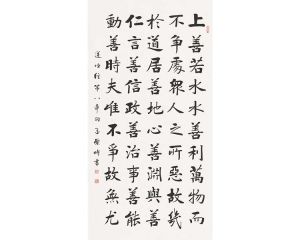 上善若水水善利萬物而
不爭處眾人之所惡故幾
於道居善地心善淵與善
仁言善信政善治事善能
動善時夫唯不爭故無尤
道德經第八章